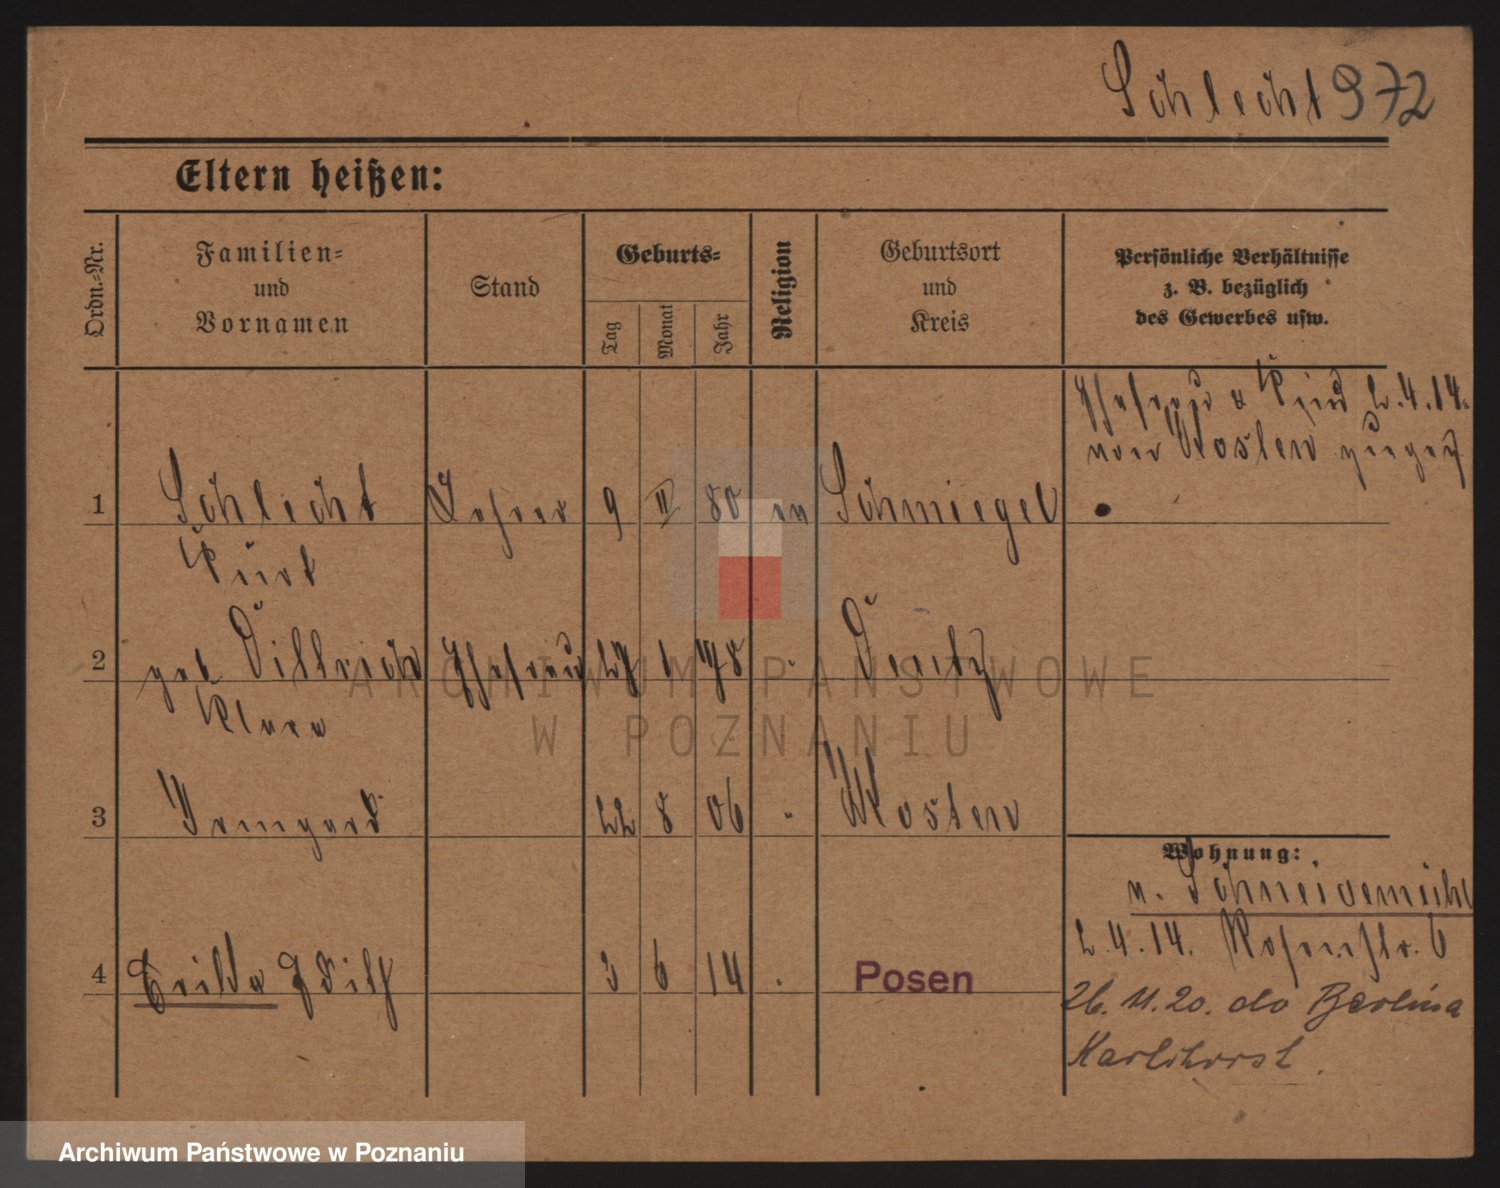 Schlecht 972
Eltern heißen:
Ordn.-Nr.
Familien- und Vornamen
Stand
Geburts-
Tag
Monat
Jahr
Religion
Geburtsort und Kreis
Persönliche Verhältnisse
z. B. bezüglich
des Gewerbes usw.
Ehefrau & Kind 2.4.14.
von Kosten
1 Schlecht Lehrer 9 II 80 Schmiegel
Kurt
2 geb. Dittrich Ehefrau 27 1 78 "
Klara
3 Irmgard 22 8 06 " Kosten
Wohnung:
n. Schneidemühl
2.4.14. Rosenstr. 6
4 3 6 14 Posen
26.11.20. do Berlina
Karlshorst.
ARCHIWUM PAŃSTWOWE
W POZNANIU
Archiwum Państwowe w Poznaniu